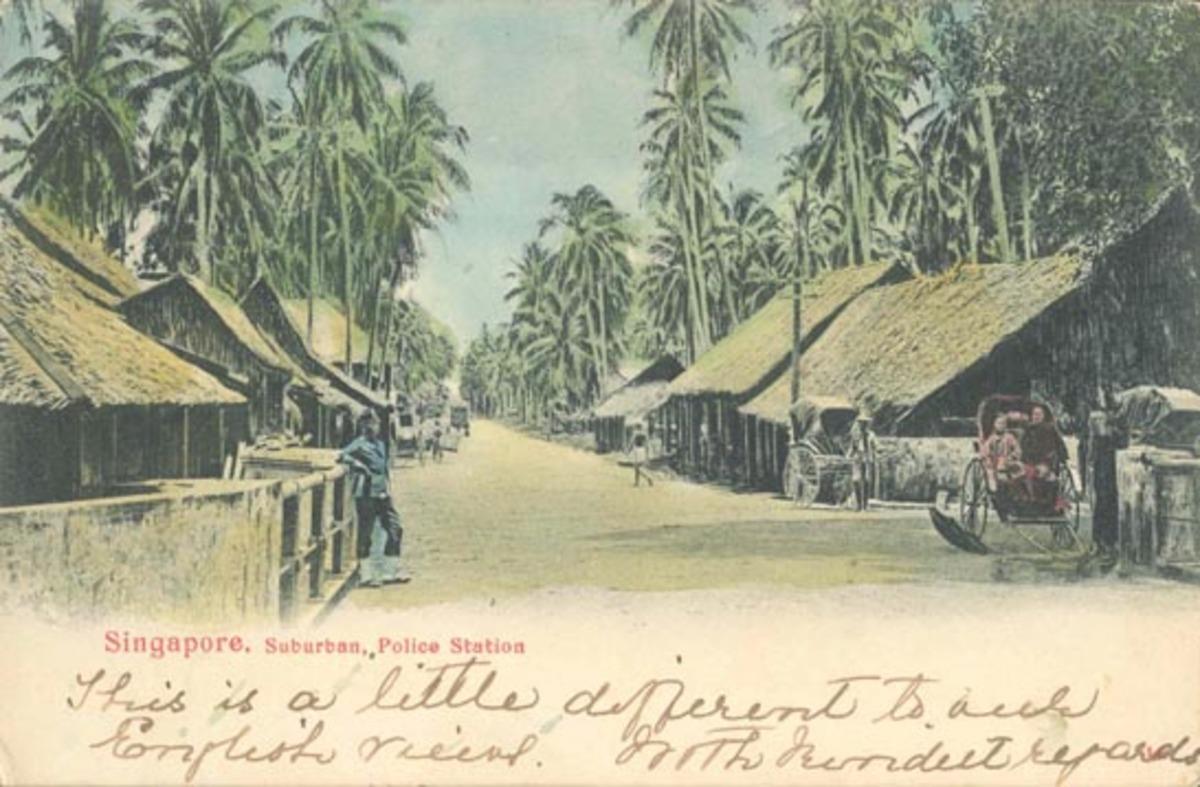 Singapore. Suburban, Police Station
This is a little different to
English views. With kindest regards